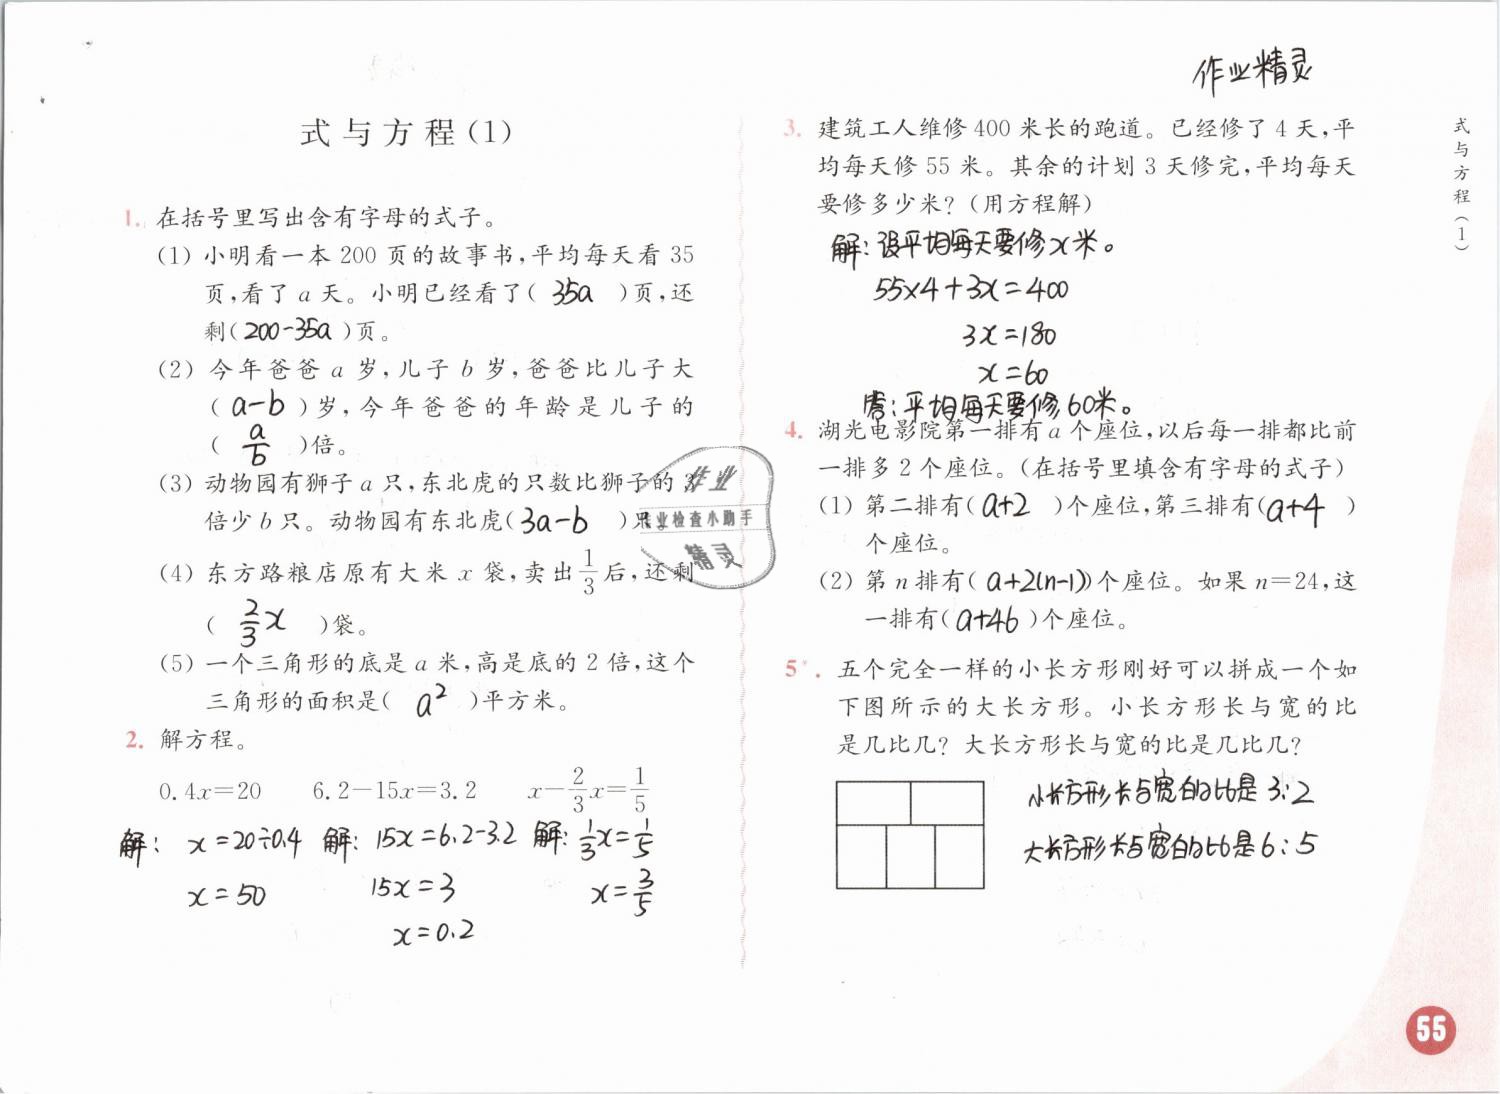 作业精灵
式与方程(1)
1. 在括号里写出含有字母的式子。
(1) 小明看一本 200 页的故事书,平均每天看 35
页,看了 a 天。小明已经看了( 35a )页,还
剩( 200-35a )页。
(2) 今年爸爸 a 岁,儿子 b 岁,爸爸比儿子大
( a-b )岁,今年爸爸的年龄是儿子的
( a/b )倍。
(3) 动物园有狮子 a 只,东北虎的只数比狮子的 3
倍少 b 只。动物园有东北虎( 3a-b )只。
(4) 东方路粮店原有大米 x 袋,卖出 1/3 后,还剩
( 2/3 x )袋。
(5) 一个三角形的底是 a 米,高是底的 2 倍,这个
三角形的面积是( a² )平方米。
2. 解方程。
0.4x=20 6.2-15x=3.2 x-2/3x=1/5
解: x=20÷0.4 解: 15x=6.2-3.2 解: 1/3x=1/5
x=50 15x=3 x=3/5
x=0.2
3. 建筑工人维修 400 米长的跑道。已经修了 4 天,平
均每天修 55 米。其余的计划 3 天修完,平均每天
要修多少米?(用方程解)
解:设平均每天要修x米。
55×4+3x=400
3x=180
x=60
答:平均每天要修60米。
4. 湖光电影院第一排有 a 个座位,以后每一排都比前
一排多 2 个座位。(在括号里填含有字母的式子)
(1) 第二排有( a+2 )个座位,第三排有( a+4 )
个座位。
(2) 第 n 排有( a+2(n-1) )个座位。如果 n=24,这
一排有( a+46 )个座位。
5*. 五个完全一样的小长方形刚好可以拼成一个如
下图所示的大长方形。小长方形长与宽的比
是几比几? 大长方形长与宽的比是几比几?
小长方形长与宽的比是 3:2
大长方形长与宽的比是6:5
式与方程(1)
作业
作业检查小助手
精灵
55